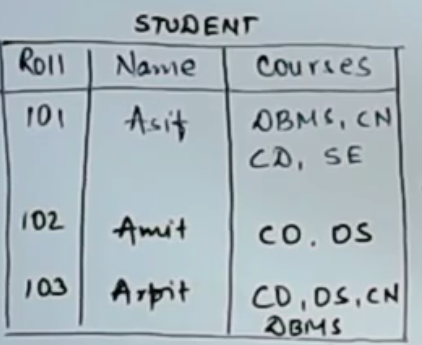 STUDENT
Roll Name Courses
101 Asit DBMS, CN
CD, SE
102 Amit CO, OS
103 Arpit CD, DS, CN
DBMS